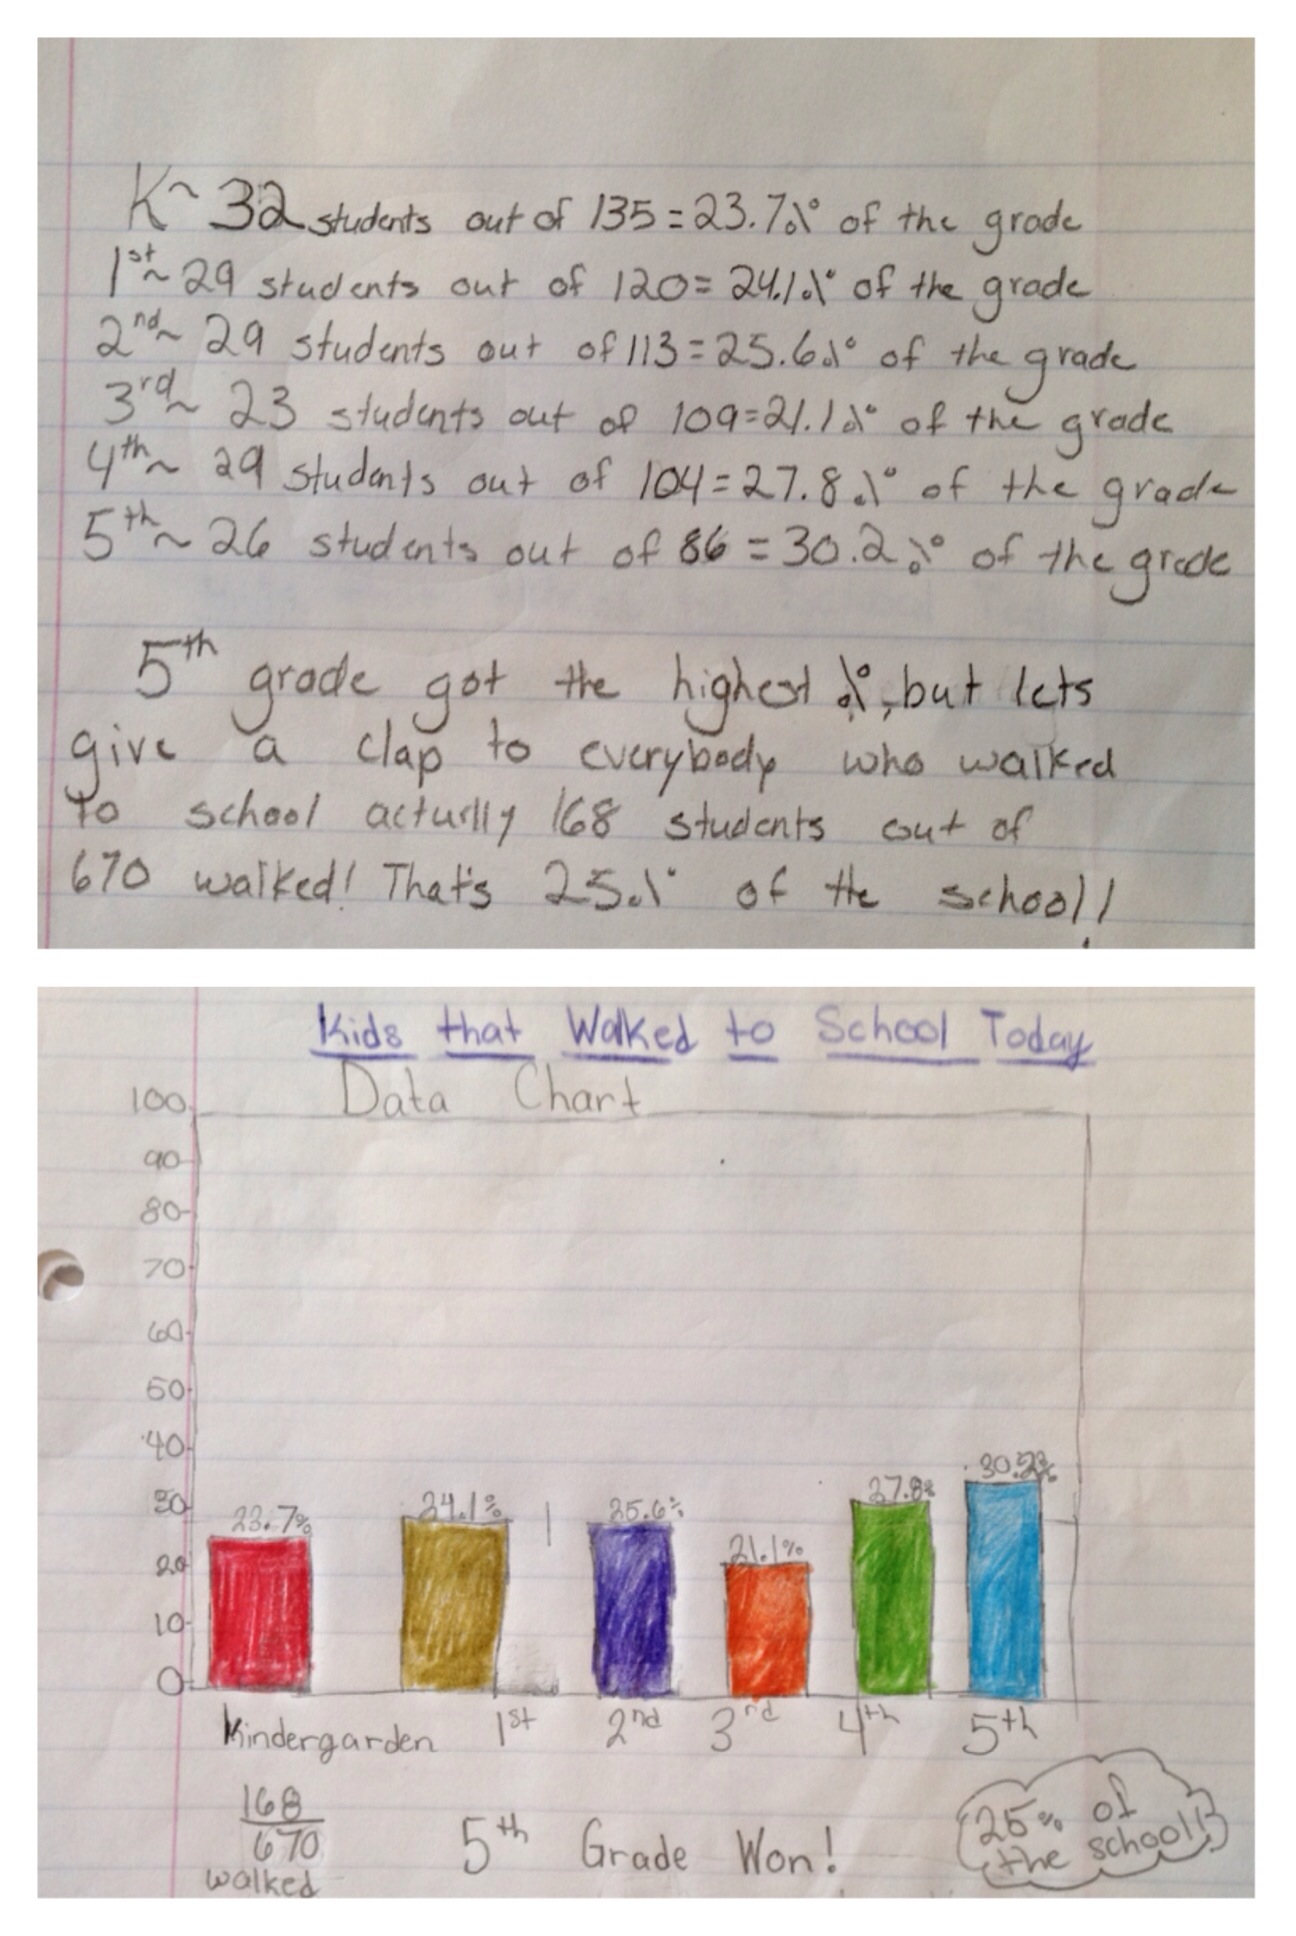 K~ 32 students out of 135 = 23.7% of the grade
1st~ 29 students out of 120 = 24.1% of the grade
2nd~ 29 students out of 113 = 25.6% of the grade
3rd~ 23 students out of 109 = 21.1% of the grade
4th~ 29 students out of 104 = 27.8% of the grade
5th~ 26 students out of 86 = 30.2% of the grade
5th grade got the highest %, but lets
give a clap to everybody who walked
to school acturlly 168 students out of
670 walked! That's 25% of the school!
Kids that Walked to School Today
Data Chart
100
90
80
70
60
50
40
30
20
10
0
23.7%
24.1%
25.6%
21.1%
27.8%
30.2%
Kindergarden 1st 2nd 3rd 4th 5th
168
670
walked
5th Grade Won!
25% of
the school!